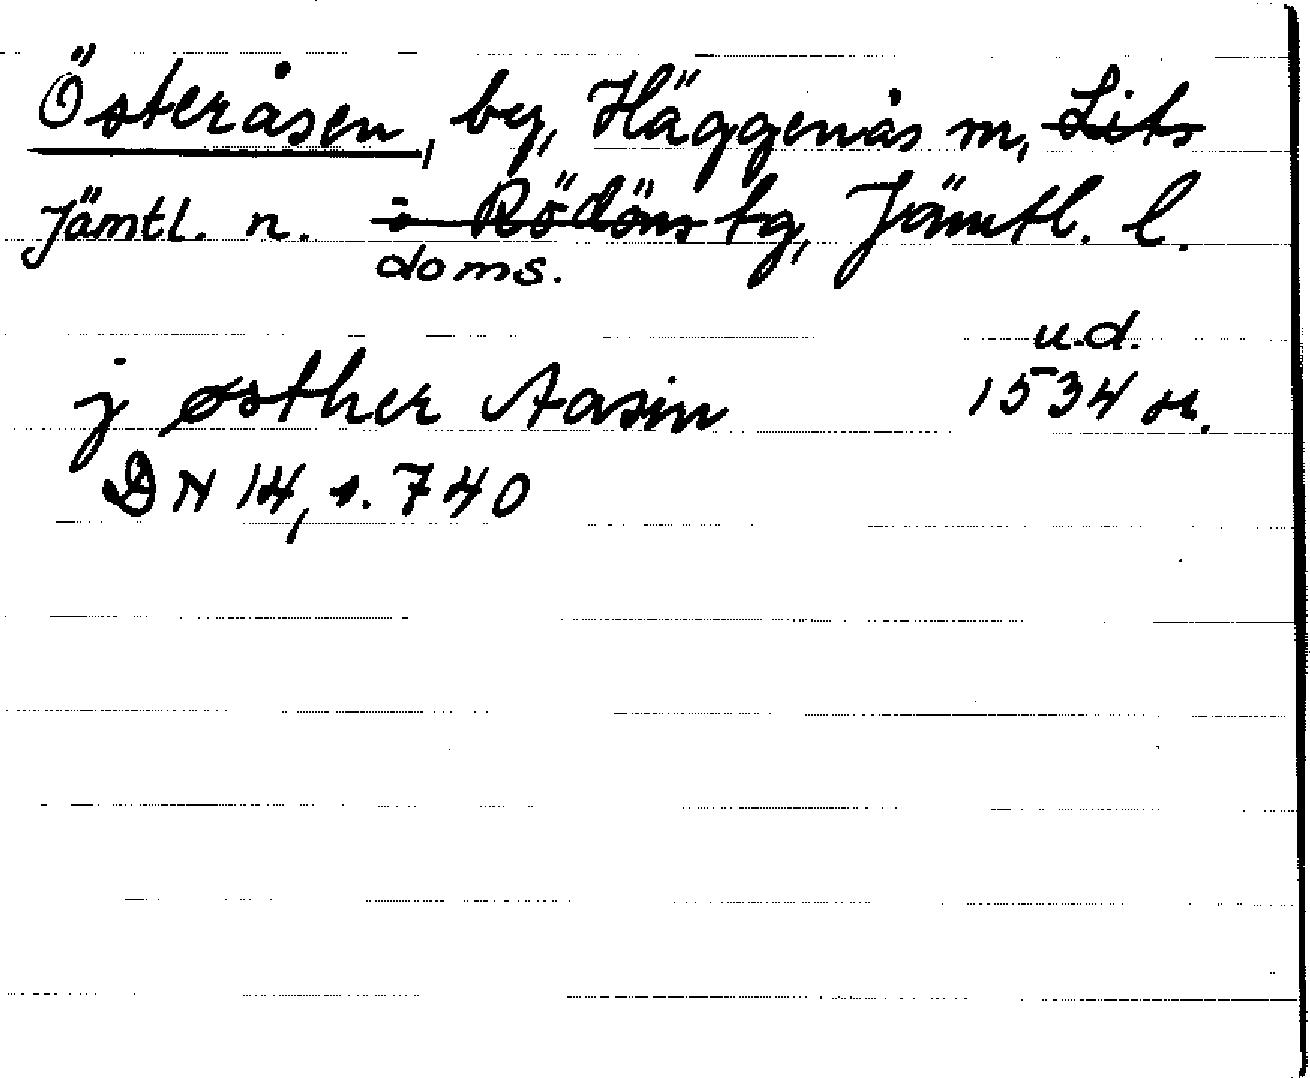 Österåsen, by, Häggenås sn, Lits
Jämtl. n. o Rödöns tg, Jämtl. l.
doms.
u.d.
j østher Aasin 1534 or.
DN 14, s. 740